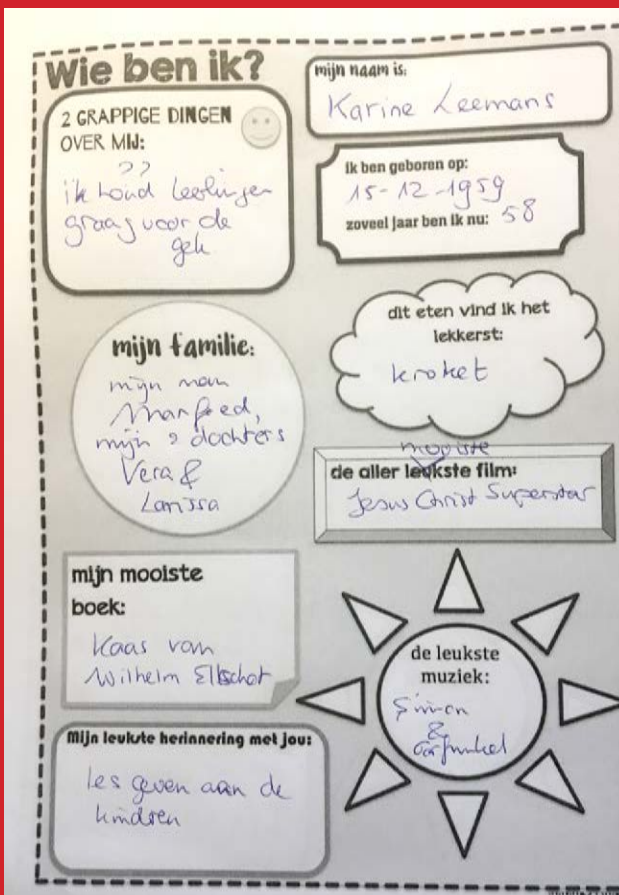 Wie ben ik?
mijn naam is:
Karine Leemans
2 GRAPPIGE DINGEN
OVER MIJ:
??
ik houd leerlingen
graag voor de
gek
ik ben geboren op:
15-12-1959
zoveel jaar ben ik nu: 58
mijn familie:
mijn man
Manfred,
mijn 2 dochters
Vera &
Larissa
dit eten vind ik het
lekkerst:
kroket
mooiste
de aller leukste film:
Jesus Christ Superstar
mijn mooiste
boek:
Kaas van
Wilhelm Elschot
de leukste
muziek:
Simon
&
Garfunkel
Mijn leukste herinnering met jou:
les geven aan de
kinderen